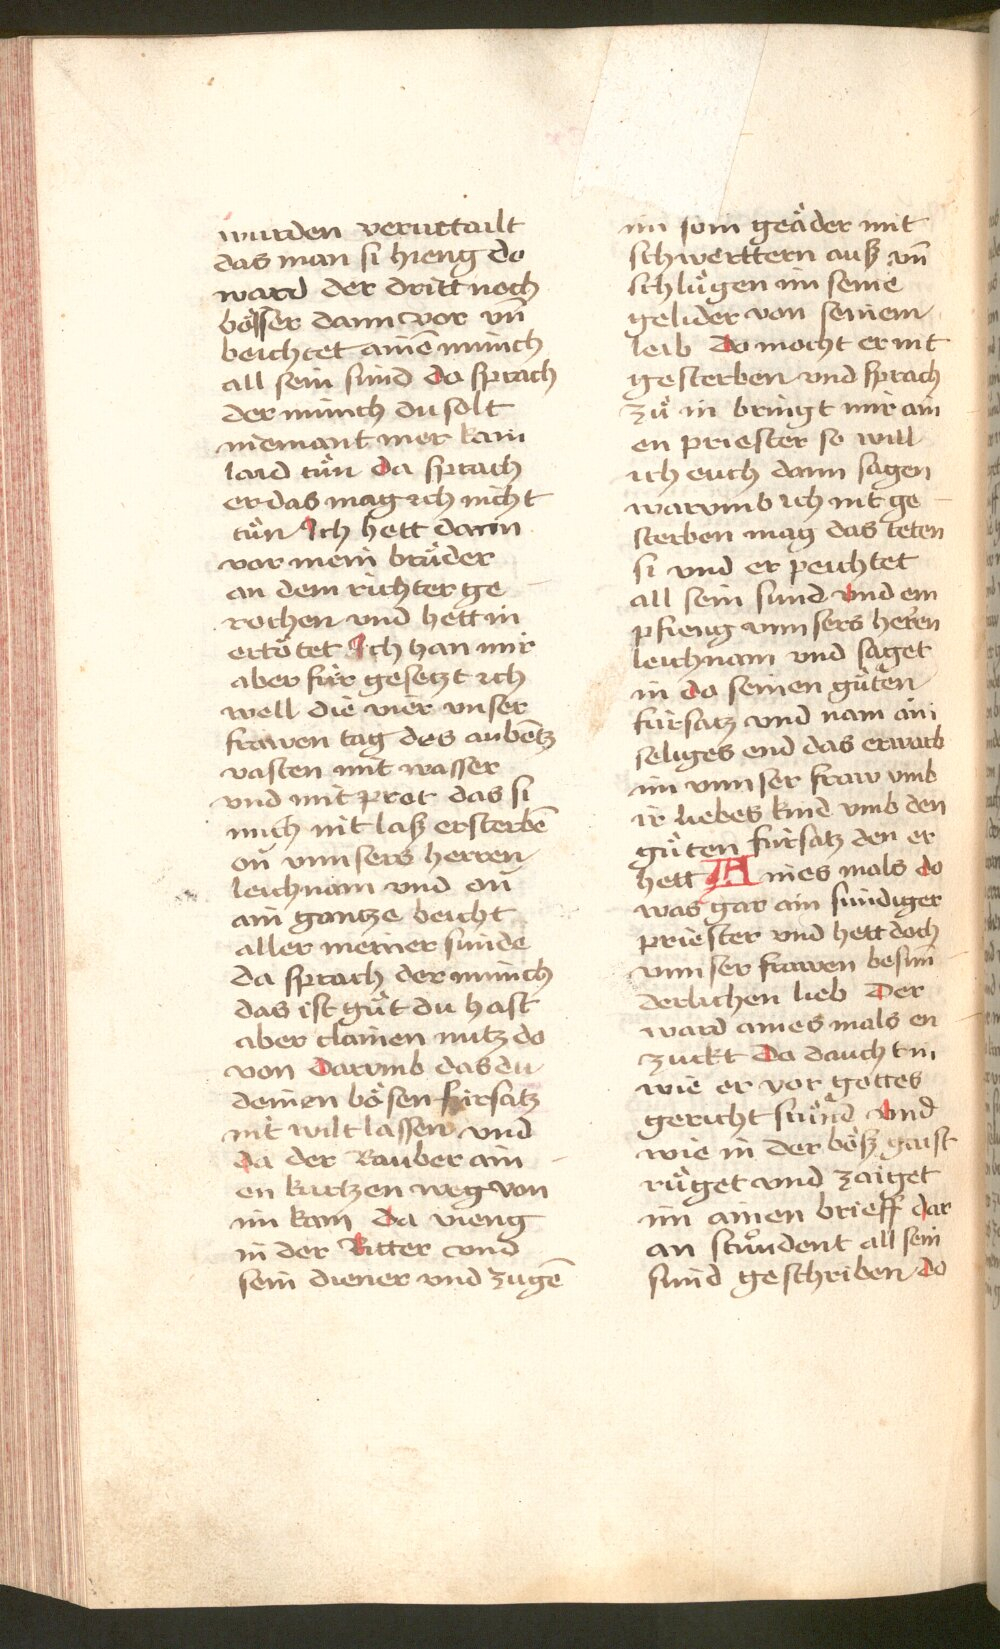 wurden verurtailt
das man si hieng do
ward der dritt noch
bösser dann vor vn̄
beichtet ainē münch
all sein sünd da sprach
der münch du solt
niemant mer kain
laid tůn da sprach
er das mag ich nicht
tůn Ich hett dann
vor mein brůder
an dem richter ge
rochen vnd hett in
ertötet Ich han mir
aber für gesetzt ich
well die vier vnser
frawen tag des aubētz
vasten mit wasser
vnd mit prot das si
mich nit lasz ersterbē
on vnnsers herren
leichnam vnd on
ain gantze beicht
aller meiner sünde
da sprach der münch
das ist gůt du hast
aber clainen nutz do
von Darvmb das du
deinen bösen fürsatz
nit wilt lassen vnd
da der Rauber ain
en kurtzen weg von
im kam da vieng
in der Ritter vnd
sein diener vnd zugē
im sein geäder mit
schwerttern ausz vn̄
schlůgen im seine
gelider von seinem
leib Do mocht er nit
gesterben vnd sprach
zů in bringt mir ain
en priester so will
ich euch dann sagen
warvmb ich nit ge
sterben mag das teten
si vnd er peichtet
all sein sünd vnd em
pfieng vnnsers herren
leichnam vnd saget
in da seinen gůten
fürsatz vnd nam ain
seliges end das erwarb
im vnnser fraw vmb
ir liebes kind vmb den
gůten fürsatz den er
hett Aines mals do
was gar ain sündiger
priester vnd hett doch
vnnser frawen besun
derlichen lieb Der
ward aines mals en
zuckt Da daucht in
wie er vor gottes
gericht stůnd vnd
wie in der bösz gaist
růget vnd zaiget
im ainen brieff dar
an stůndent all sein
sünd geschriben do